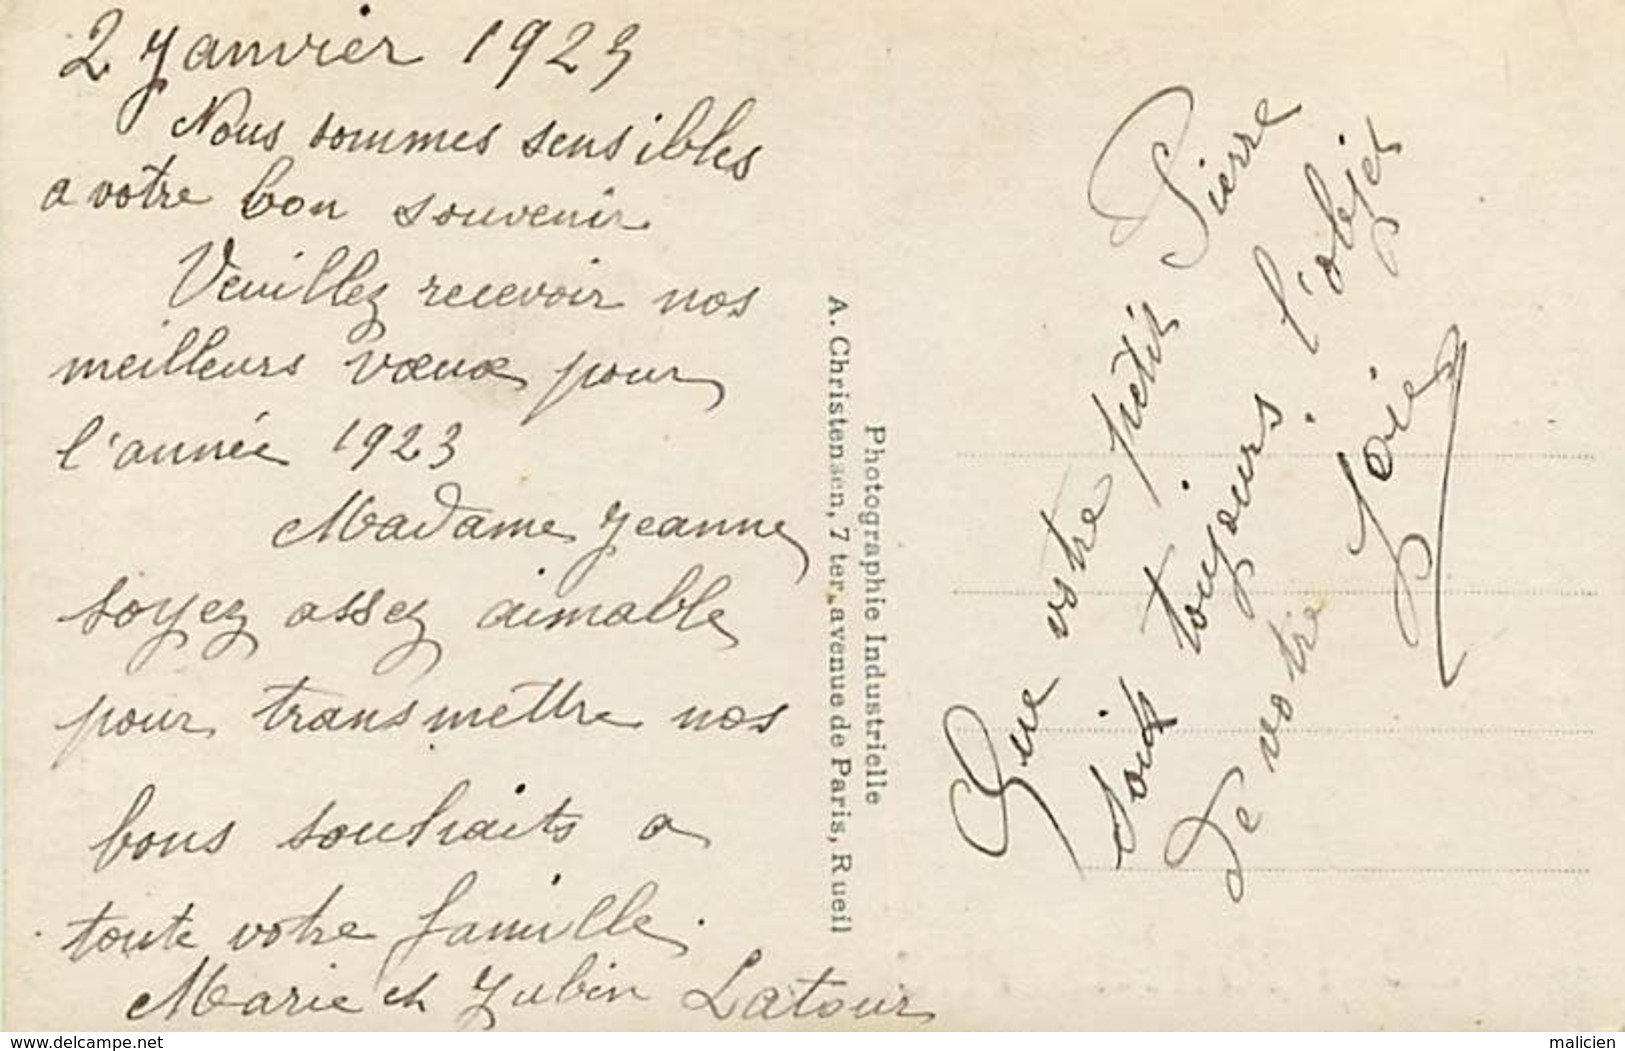 2 Janvier 1923
Nous sommes sensibles
a votre bon souvenir
Veuillez recevoir nos
meilleurs vœux pour
l'année 1923
Madame Jeanne
soyez assez aimable
pour transmettre nos
bons souhaits a
toute votre famille.
Marie et Jubin Latour
Photographie Industrielle
A. Christensen, 7 ter, avenue de Paris, Rueil
Que votre petit Pierre
soit toujours l'objet
De votre Joie
www.delcampe.net
malicien